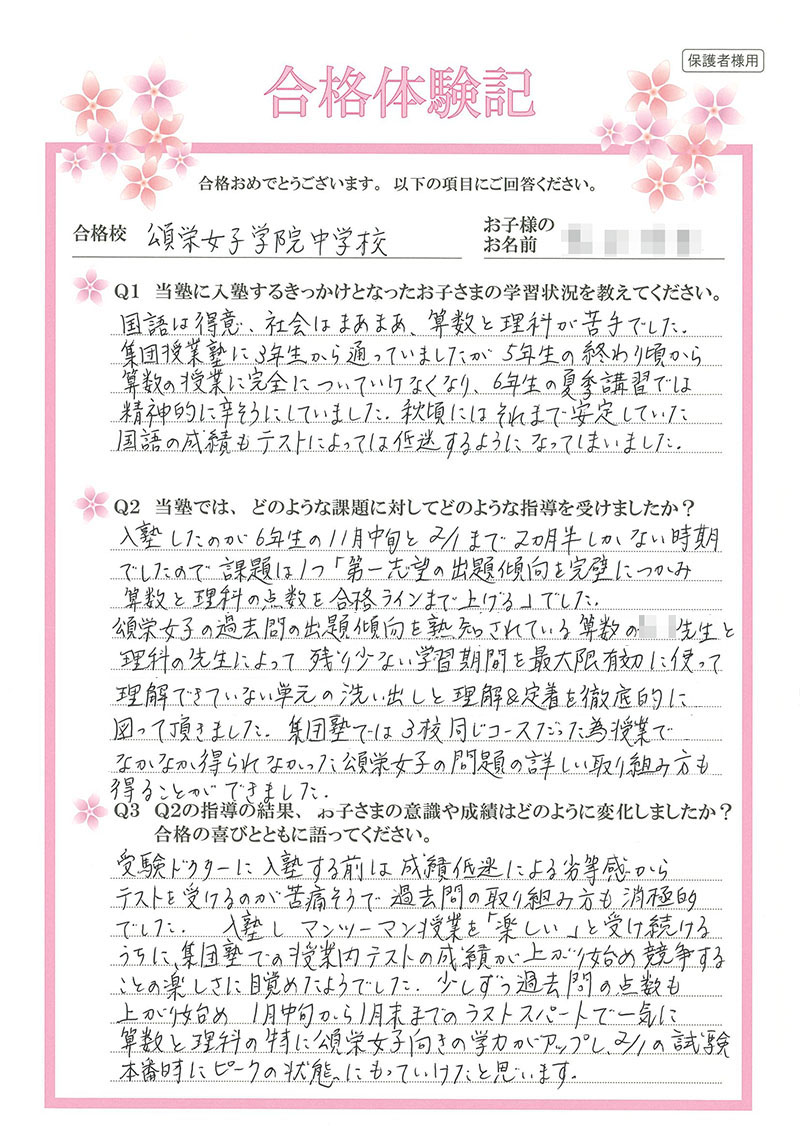 保護者様用
合格体験記
合格おめでとうございます。以下の項目にご回答ください。
合格校 頌栄女子学院中学校
お子様の
お名前
Q1 当塾に入塾するきっかけとなったお子さまの学習状況を教えてください。
国語は得意、社会はまあまあ、算数と理科が苦手でした.
集団授業塾に3年生から通っていましたが5年生の終わり頃から
算数の授業に完全についていけなくなり、6年生の夏季講習では
精神的に辛そうにしていました. 秋頃にはそれまで安定していた
国語の成績もテストによっては低迷するようになってしまいました.
Q2 当塾では、どのような課題に対してどのような指導を受けましたか？
入塾したのが6年生の11月中旬と2/1まで2カ月半しかない時期
でしたので課題は1つ「第一志望の出題傾向を完璧につかみ
算数と理科の点数を合格ラインまで上げる」でした.
頌栄女子の過去問の出題傾向を熟知されている算数の 先生と
理科の先生によって残り少ない学習期間を最大限有効に使って
理解できていない単元の洗い出しと理解&定着を徹底的に
図って頂きました. 集団塾では3校同じコースだった為授業で
なかなか得られなかった頌栄女子の問題の詳しい取り組み方も
得ることができました.
Q3 Q2の指導の結果、お子さまの意識や成績はどのように変化しましたか？
合格の喜びとともに語ってください。
受験ドクターに入塾する前は成績低迷による劣等感から
テストを受けるのが苦痛そうで過去問の取り組み方も消極的
でした. 入塾しマンツーマン授業を「楽しい」と受け続ける
うちに、集団塾での授業内テストの成績が上がり始め競争する
ことの楽しさに目覚めたようでした. 少しずつ過去問の点数も
上がり始め 1月中旬から1月末までのラストスパートで一気に
算数と理科の特に頌栄女子向きの学力がアップし、2/1の試験
本番時にピークの状態にもっていけたと思います.